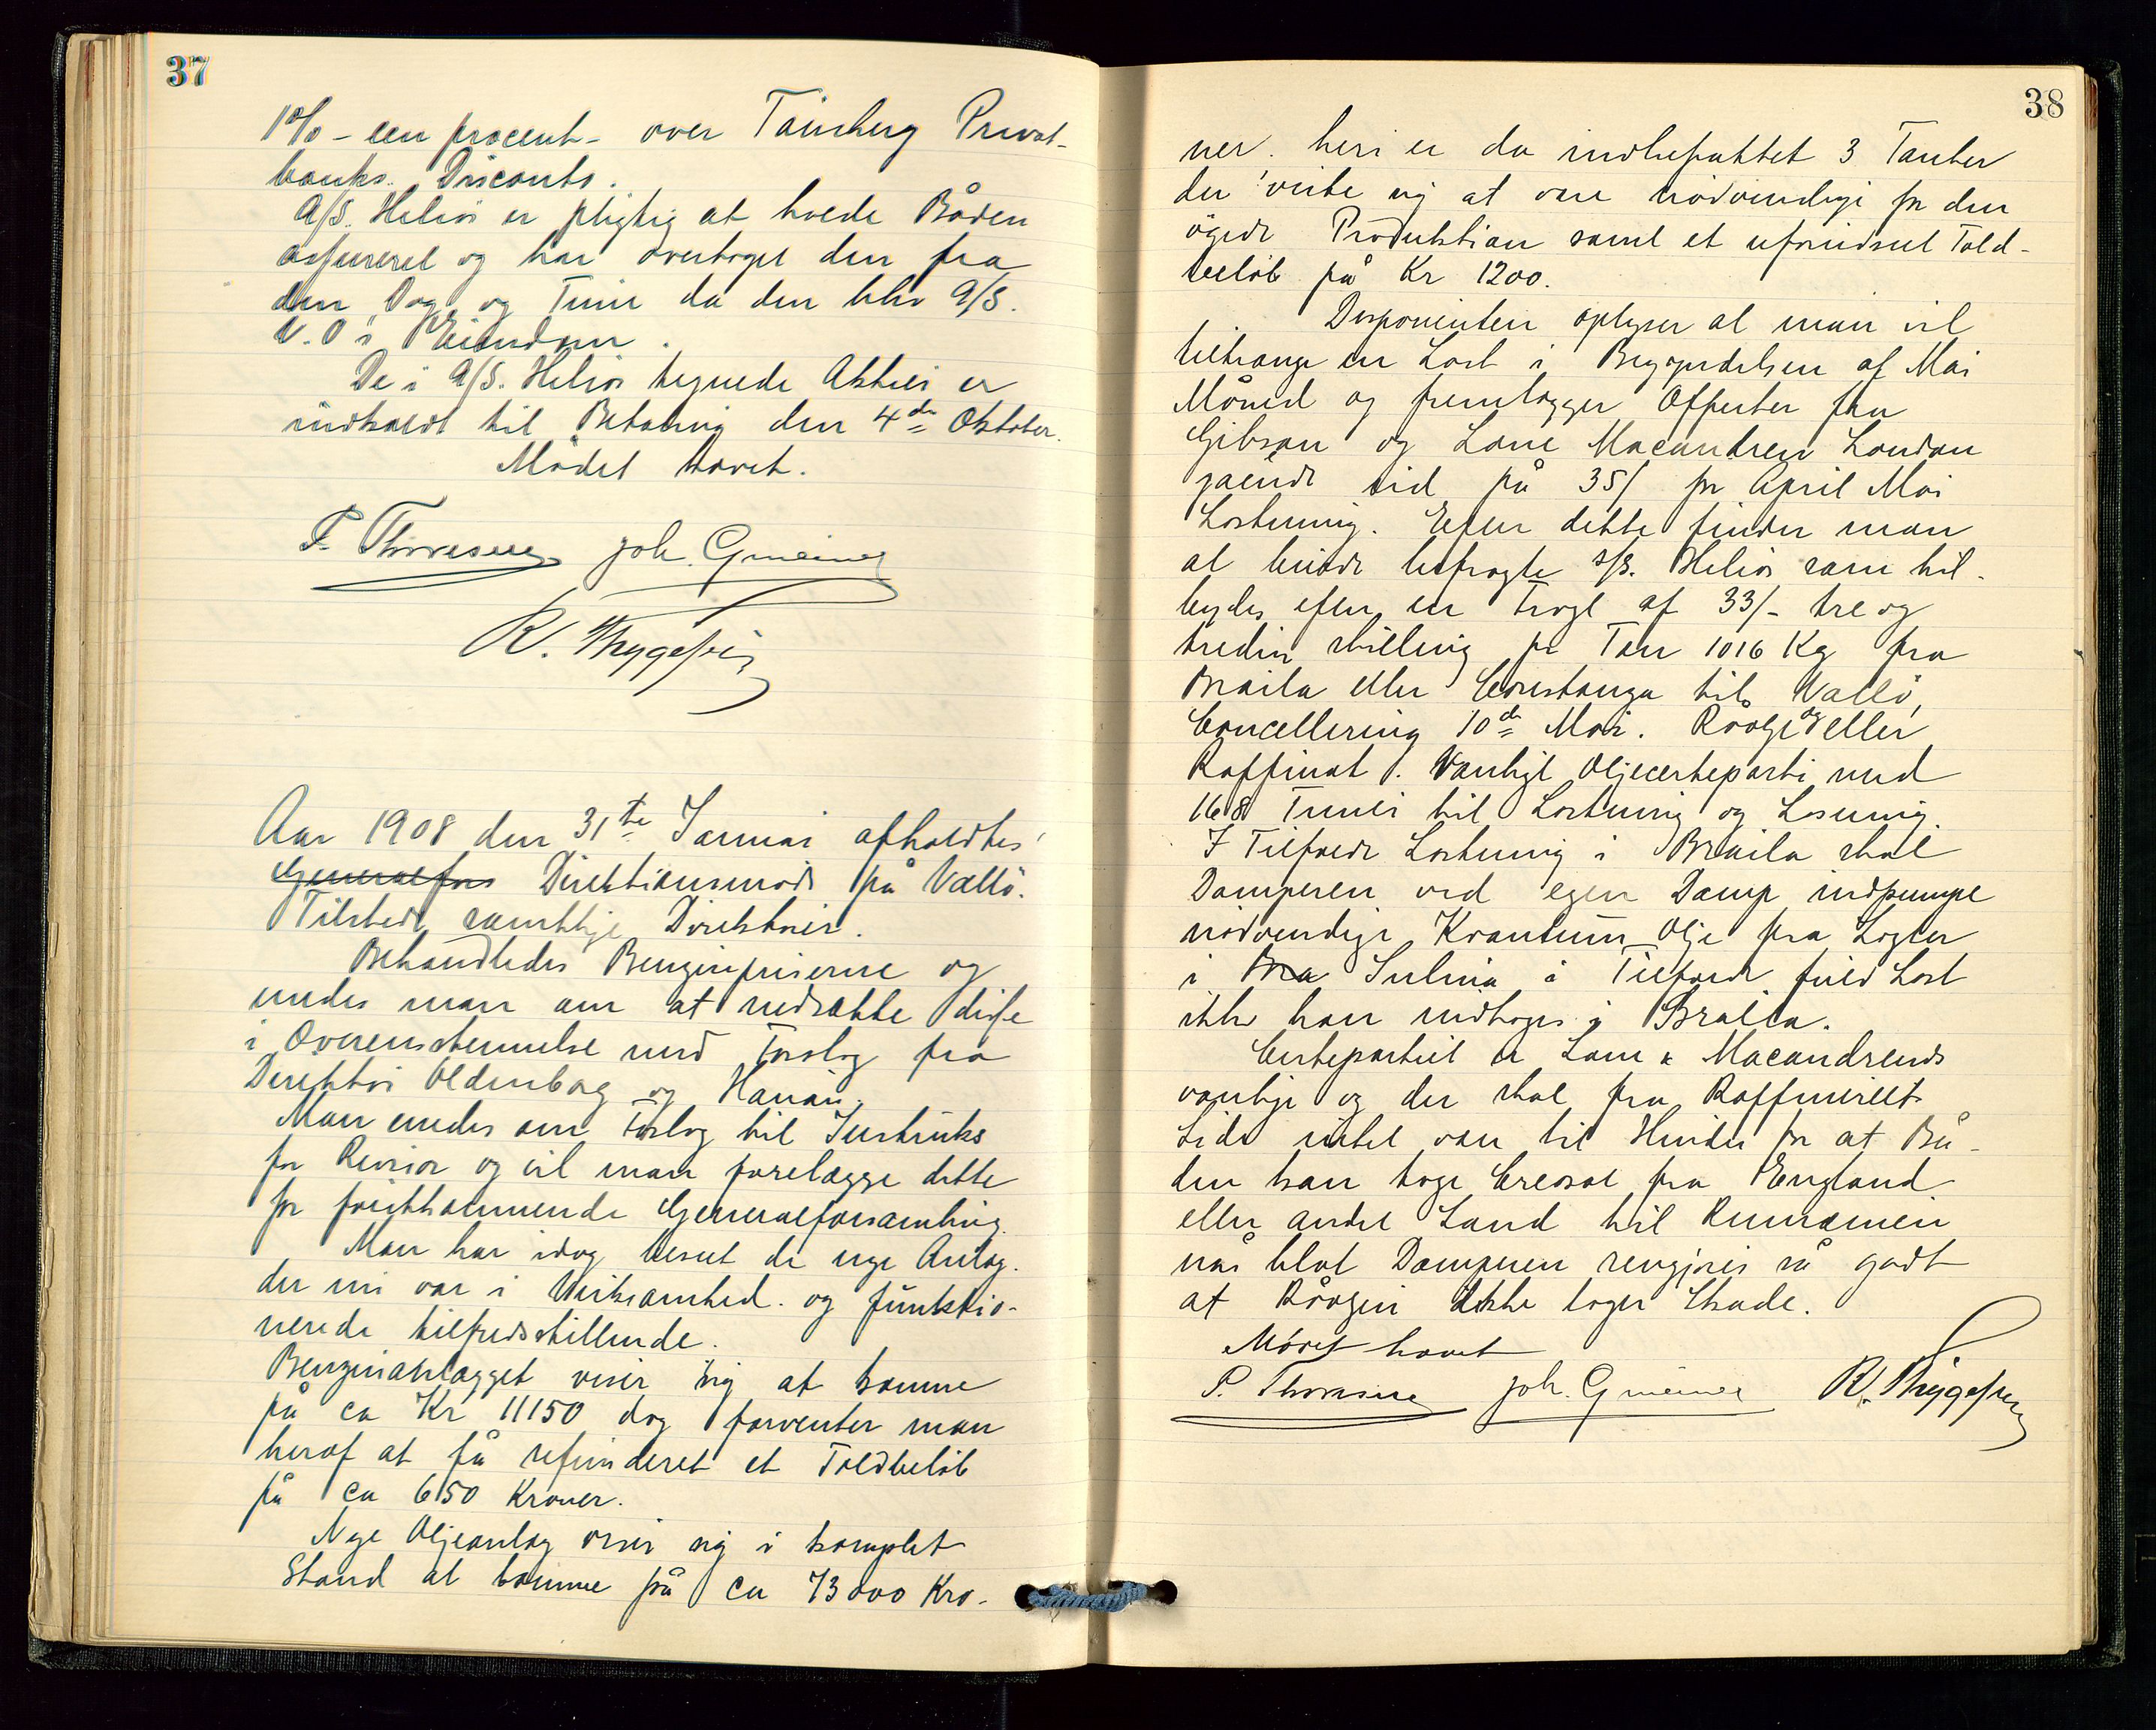 37
1% - een procent - over Tönsberg Privat-
banks Disconto.
A/S. Helios er pligtig at holde Båden
assureret og har overtaget den fra
den Dag og Time da den blev A/S.
V. O's Eiendom.
De i A/S. Helios tegnede Aktier er
indkaldt til Betaling den 4de Oktober.
Mödet hævet.
P. Thoresen Joh. Grieiner
R. Thygesen
Aar 1908 den 31te Januar afholdtes
Generalfors Direktionsmöde på Vallö.
Tilstede samtlige Direktörer.
Behandledes Benzinpriserne og
enedes man om at nedsætte disse
i Overensstemmelse med Forslag fra
Direktör Oldenborg og Hanan.
Man enedes om Forslag til Instruks
for Revisor og vil man forelægge dette
for förstkommende Generalforsamling.
Man har idag beseet de nye Anlæg.
der nu var i Virksomhed. og funktio-
nerede tilfredsstillende.
Benzinanlægget viser sig at komme
på ca Kr 11150 dog forventer man
heraf at få refunderet et Toldbelöb
på ca 650 Kroner.
Nye Oljeanlæg viser sig i komplet
Stand at komme på ca 73000 Kro-
38
ner. heri er da indbefattet 3 Tanker
der viste sig at være nödvendige for den
ögede Produktion samt et uforudseet Told-
belöb på Kr 1200.
Disponenten oplyser at man vil
tiltrænge en Last i Begyndelsen af Mai
Måned og fremlægger Offerter fra
Gibson og Lane Macandrew London
gående ud på 35/ for April Mai
Lastning. Efter dette finder man
at burde befragte S/S. Helios som til-
bydes efter en Fragt af 33/- tre og
tredive shilling pr Ton 1016 Kg fra
Braila eller Constanza til Vallö,
Cancellering 10de Mai. Råolje og eller
Raffinat. Vanligt Oljecerteparti med
168 Timer til Lastning og Losning.
I Tilfælde Lastning i Braila skal
Damperen ved egen Damp indpumpe
nödvendige Kvantum Olje fra Lægter
i Bra Sulina i Tilfælde fuld Last
ikke kan indtages i Braila.
Certepartiet er Lane & Macandrews
vanlige og der skal fra Raffineriets
Side intet være til Hinder for at Bå-
den kan tage Creosot fra England
eller andet Land til Rumænien
når blot Damperen rengjöres så godt
at Råoljen ikke tager Skade.
Mödet hævet
P. Thoresen Joh. Grieiner R. Thygesen